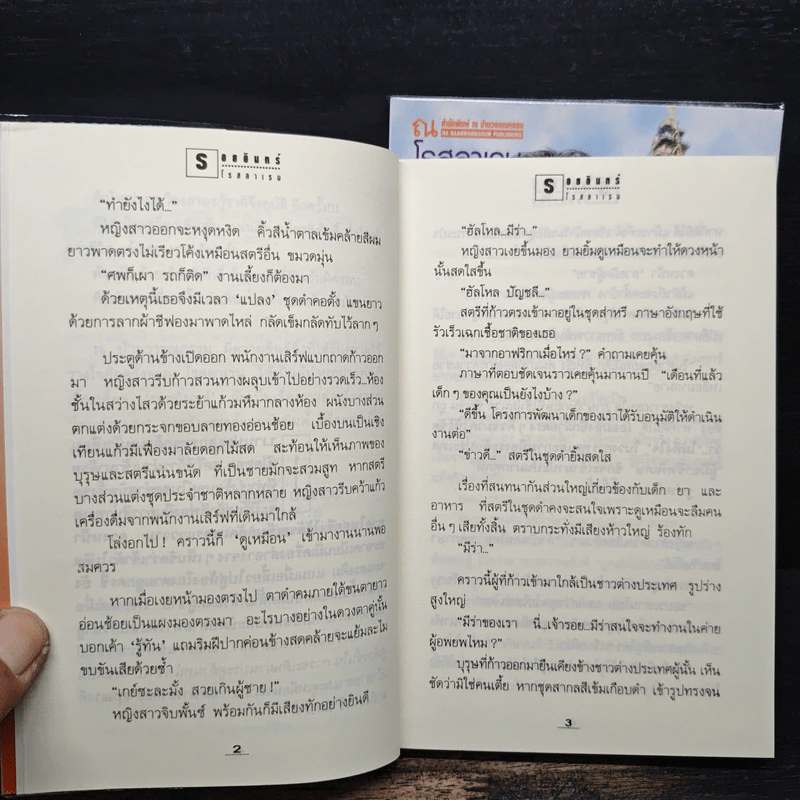 รอยอินทร์
โรสลาเรน
“ทำยังไงได้...”
หญิงสาวออกจะหงุดหงิด คิ้วสีน้ำตาลเข้มคล้ายสีผม
ยาวพาดตรงไม่เรียวโค้งเหมือนสตรีอื่น ขมวดมุ่น
“ศพก็เผา รถก็ติด” งานเลี้ยงก็ต้องมา
ด้วยเหตุนี้เธอจึงมีเวลา ‘แปลง’ ชุดดำคอตั้ง แขนยาว
ด้วยการลากผ้าชีฟองมาพาดไหล่ กลัดเข็มกลัดทับไว้ลากๆ
ประตูด้านข้างเปิดออก พนักงานเสิร์ฟแบกถาดก้าวออก
มา หญิงสาวรีบก้าวสวนทางผลุบเข้าไปอย่างรวดเร็ว..ห้อง
ชั้นในสว่างไสวด้วยระย้าแก้วมหึมากลางห้อง ผนังบางส่วน
ตกแต่งด้วยกระจกขอบลายทองอ่อนช้อย เบื้องบนเป็นเชิง
เทียนแก้วมีเฟื่องมาลัยดอกไม้สด สะท้อนให้เห็นภาพของ
บุรุษและสตรีแน่นขนัด ที่เป็นชายมักจะสวมสูท หากสตรี
บางส่วนแต่งชุดประจำชาติหลากหลาย หญิงสาวรีบคว้าแก้ว
เครื่องดื่มจากพนักงานเสิร์ฟที่เดินมาใกล้
โล่งอกไป ! คราวนี้ก็ ‘ดูเหมือน’ เข้ามางานนานพอ
สมควร
หากเมื่อเงยหน้ามองตรงไป ตาดำคมภายใต้ขนตายาว
อ่อนช้อยเป็นแผงมองตรงมา อะไรบางอย่างในดวงตาคู่นั้น
บอกเค้า ‘รู้ทัน’ แถมริมฝีปากค่อนข้างสดคล้ายจะแย้มละไม
ขบขันเสียด้วยซ้ำ
“เกย์ซะละมั้ง สวยเกินผู้ชาย !”
หญิงสาวจิบพั้นซ์ พร้อมกันก็มีเสียงทักอย่างยินดี
2
ณ สำนักพิมพ์ ณ บ้านวรรณกรรม
NA BAANWANNAGUM PUBLISHING
โรสลาเรน
รอยอินทร์
โรสลาเรน
“ฮัลโหล...มีร่า...”
หญิงสาวเงยขึ้นมอง ยามยิ้มดูเหมือนจะทำให้ดวงหน้า
นั้นสดใสขึ้น
“ฮัลโหล ปัญชลี...”
สตรีที่ก้าวตรงเข้ามาอยู่ในชุดส่าหรี ภาษาอังกฤษที่ใช้
รัวเร็วเฉกเชื้อชาติของเธอ
“มาจากอาฟริกาเมื่อไหร่ ?” คำถามเคยคุ้น
ภาษาที่ตอบชัดเจนราวเคยคุ้นมานานปี “เดือนที่แล้ว
เด็กๆ ของคุณเป็นยังไงบ้าง ?”
“ดีขึ้น โครงการพัฒนาเด็กของเราได้รับอนุมัติให้ดำเนิน
งานต่อ”
“ข่าวดี...” สตรีในชุดดำยิ้มสดใส
เรื่องที่สนทนากันส่วนใหญ่เกี่ยวข้องกับเด็ก ยา และ
อาหาร ที่สตรีในชุดดำคงจะสนใจเพราะดูเหมือนจะลืมคน
อื่นๆ เสียทั้งสิ้น ตราบกระทั่งมีเสียงห้าวใหญ่ ร้องทัก
“มีร่า...”
คราวนี้ผู้ที่ก้าวเข้ามาใกล้เป็นชาวต่างประเทศ รูปร่าง
สูงใหญ่
“มีร่าของเรา นี่...เจ้ารอย...มีร่าสนใจจะทำงานในค่าย
ผู้อพยพไหม ?”
บุรุษที่ก้าวออกมายืนเคียงข้างชาวต่างประเทศผู้นั้น เห็น
ชัดว่ามิใช่คนเตี้ย หากชุดสากลสีเข้มเกือบดำ เข้ารูปทรงจน
3